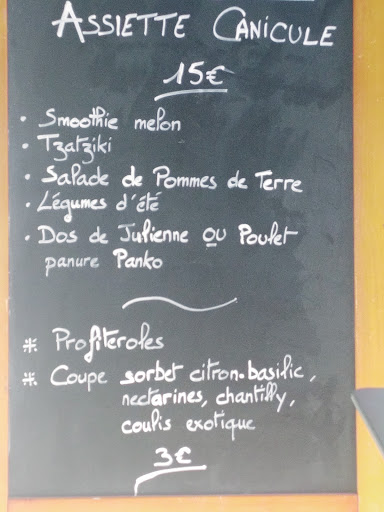 ASSIETTE CANICULE
15€
• Smoothie melon
• Tzatziki
• Salade de Pommes de Terre
• Légumes d'été
• Dos de Julienne ou Poulet
panure Panko
* Profiteroles
* Coupe sorbet citron-basilic,
nectarines, chantilly,
coulis exotique
3€